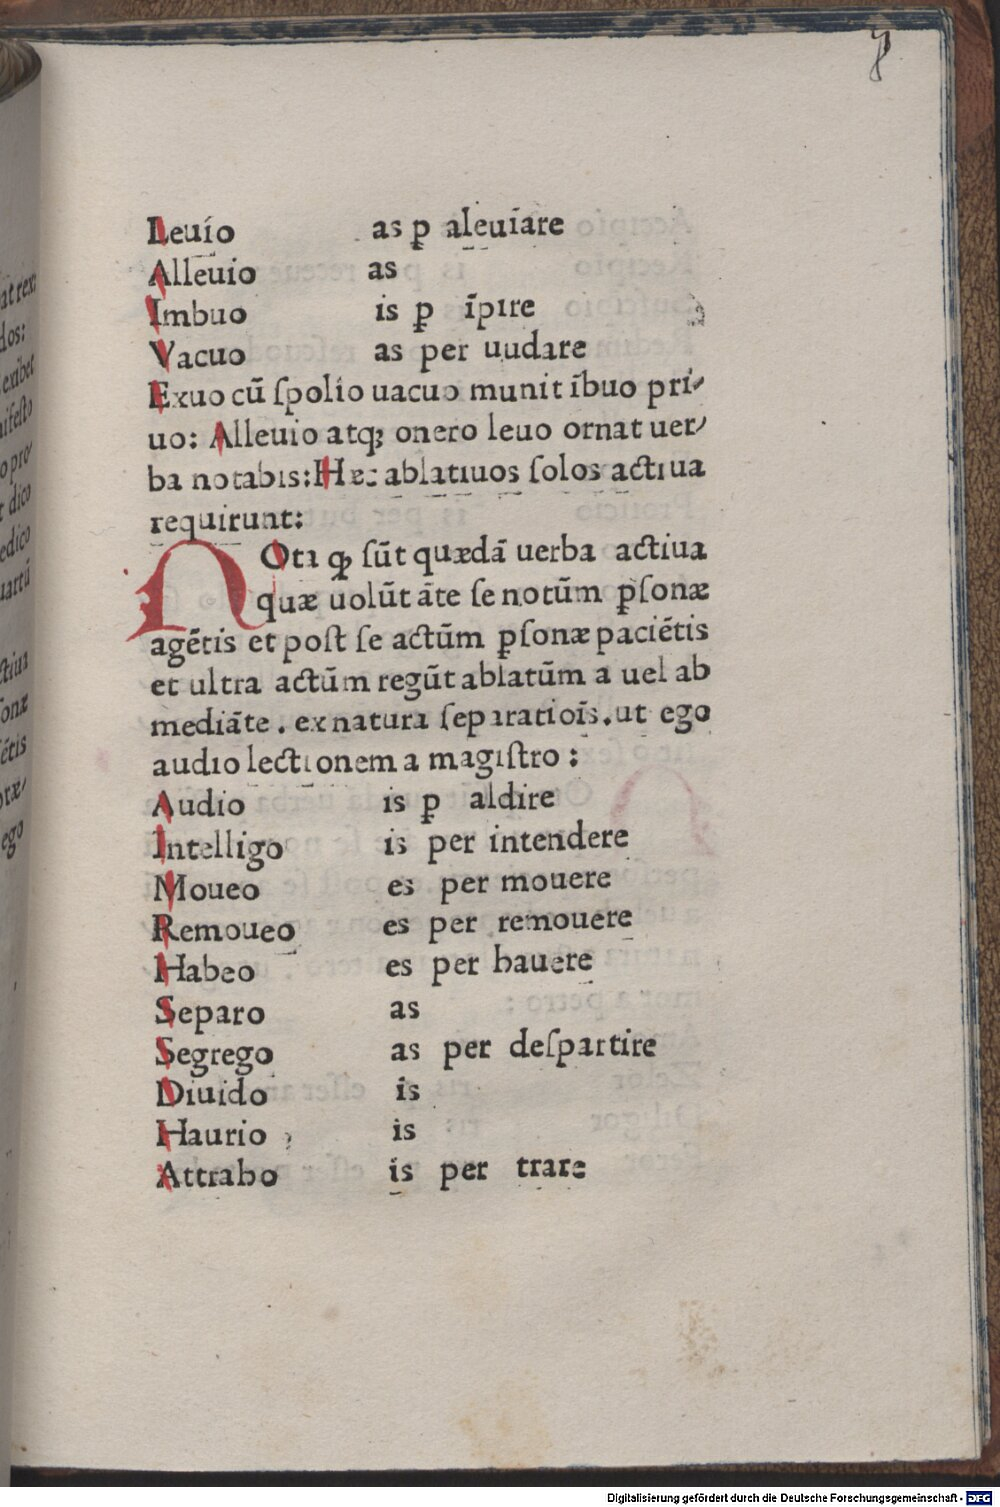 8
Leuio as ꝑ aleuiare
Alleuio as
Imbuo is ꝑ īpire
Vacuo as per uudare
Exuo cū ſpolio uacuo munit ībuo pri⸗
uo: Alleuio atqꝫ onero leuo ornat uer⸗
ba notabis: Hec ablatiuos ſolos actiua
requirunt:
NOta ꝙ ſūt quædā uerba actiua
quæ uolūt āte ſe notūm ꝑſonæ
agētis et poſt ſe actūm ꝑſonæ paciētis
et ultra actūm regūt ablatūm a uel ab
mediāte. ex natura ſeparatiois̄. ut ego
audio lectionem a magiſtro:
Audio is ꝑ aldire
Intelligo is per intendere
Moueo es per mouere
Remoueo es per remouere
Habeo es per hauere
Separo as
Segrego as per deſpartire
Diuido is
Haurio is
Attraho is per trare
at rex:
dos:
exibet
nifeſto
o pro⸗
t dico
edico
uartū
ctiua
ſonæ
ētis
ego
Digitalisierung gefördert durch die Deutsche Forschungsgemeinschaft - DFG